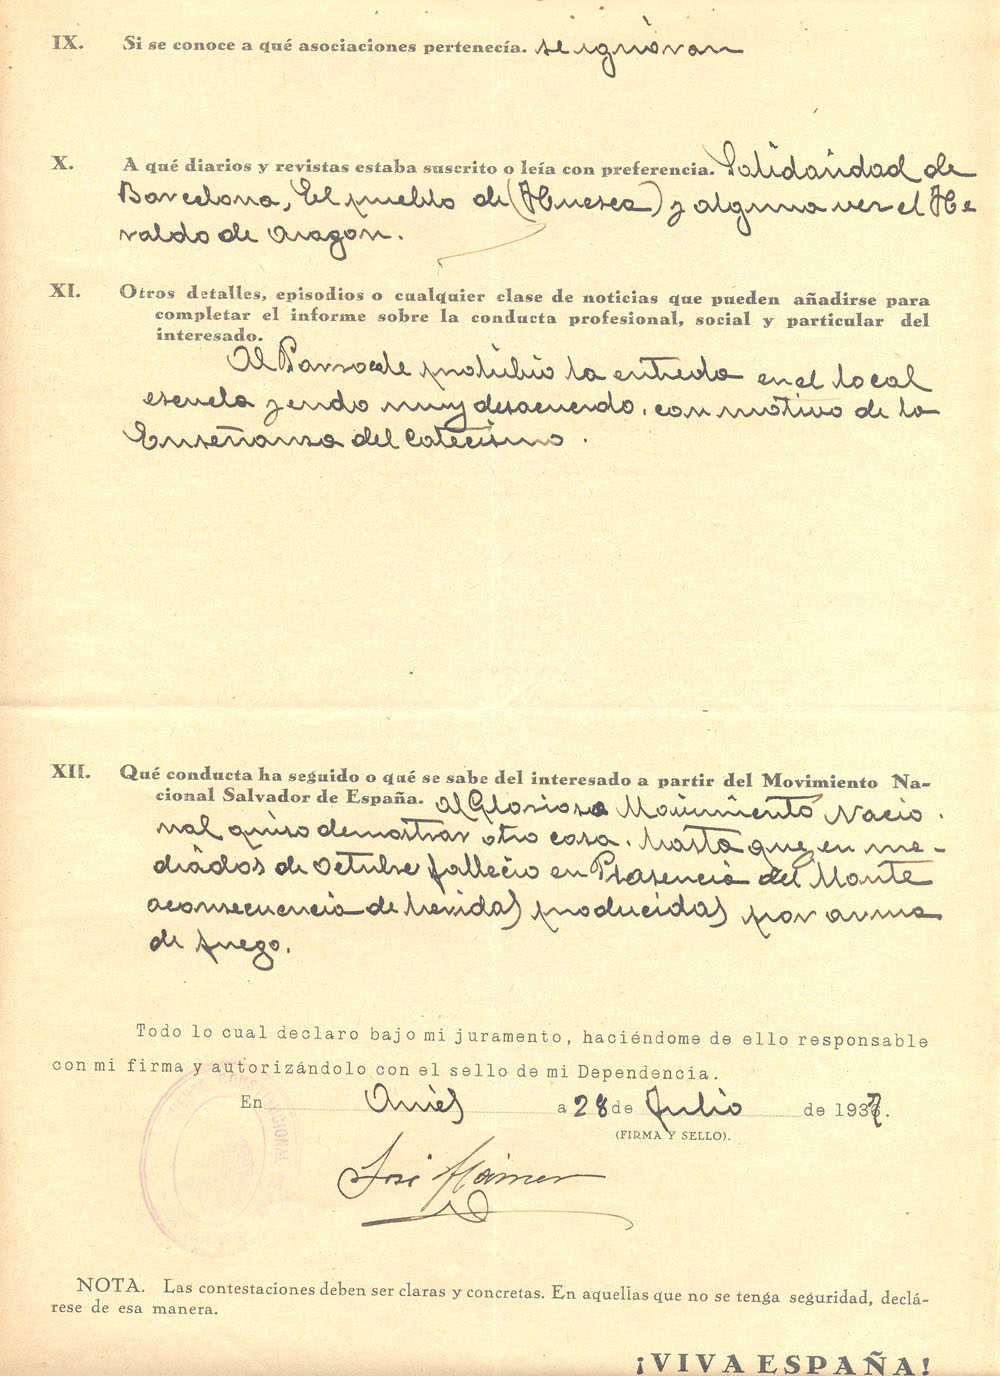 IX. Si se conoce a qué asociaciones pertenecía. se ignoran
X. A qué diarios y revistas estaba suscrito o leía con preferencia. Solidaridad de
Barcelona, El pueblo de (Huesca) y alguna vez el He
raldo de Aragon.
XI. Otros detalles, episodios o cualquier clase de noticias que pueden añadirse para
completar el informe sobre la conducta profesional, social y particular del
interesado.
Al Parroco le prohibio la entrada en el local
escuela yendo muy desacuerdo, con motivo de la
Enseñanza del Catecismo.
XII. Qué conducta ha seguido o qué se sabe del interesado a partir del Movimiento Na-
cional Salvador de España. Al Glorioso Movimiento Nacio
nal quiso demostrar otra cosa. hasta que en me-
diados de Octubre fallecio en Plasencia del Monte
a consecuencia de heridas producidas por arma
de fuego.
Todo lo cual declaro bajo mi juramento, haciéndome de ello responsable
con mi firma y autorizándolo con el sello de mi Dependencia.
En Anies a 28 de Julio de 1937.
(FIRMA Y SELLO).
José
NOTA. Las contestaciones deben ser claras y concretas. En aquellas que no se tenga seguridad, declá-
rese de esa manera.
¡VIVA ESPAÑA!